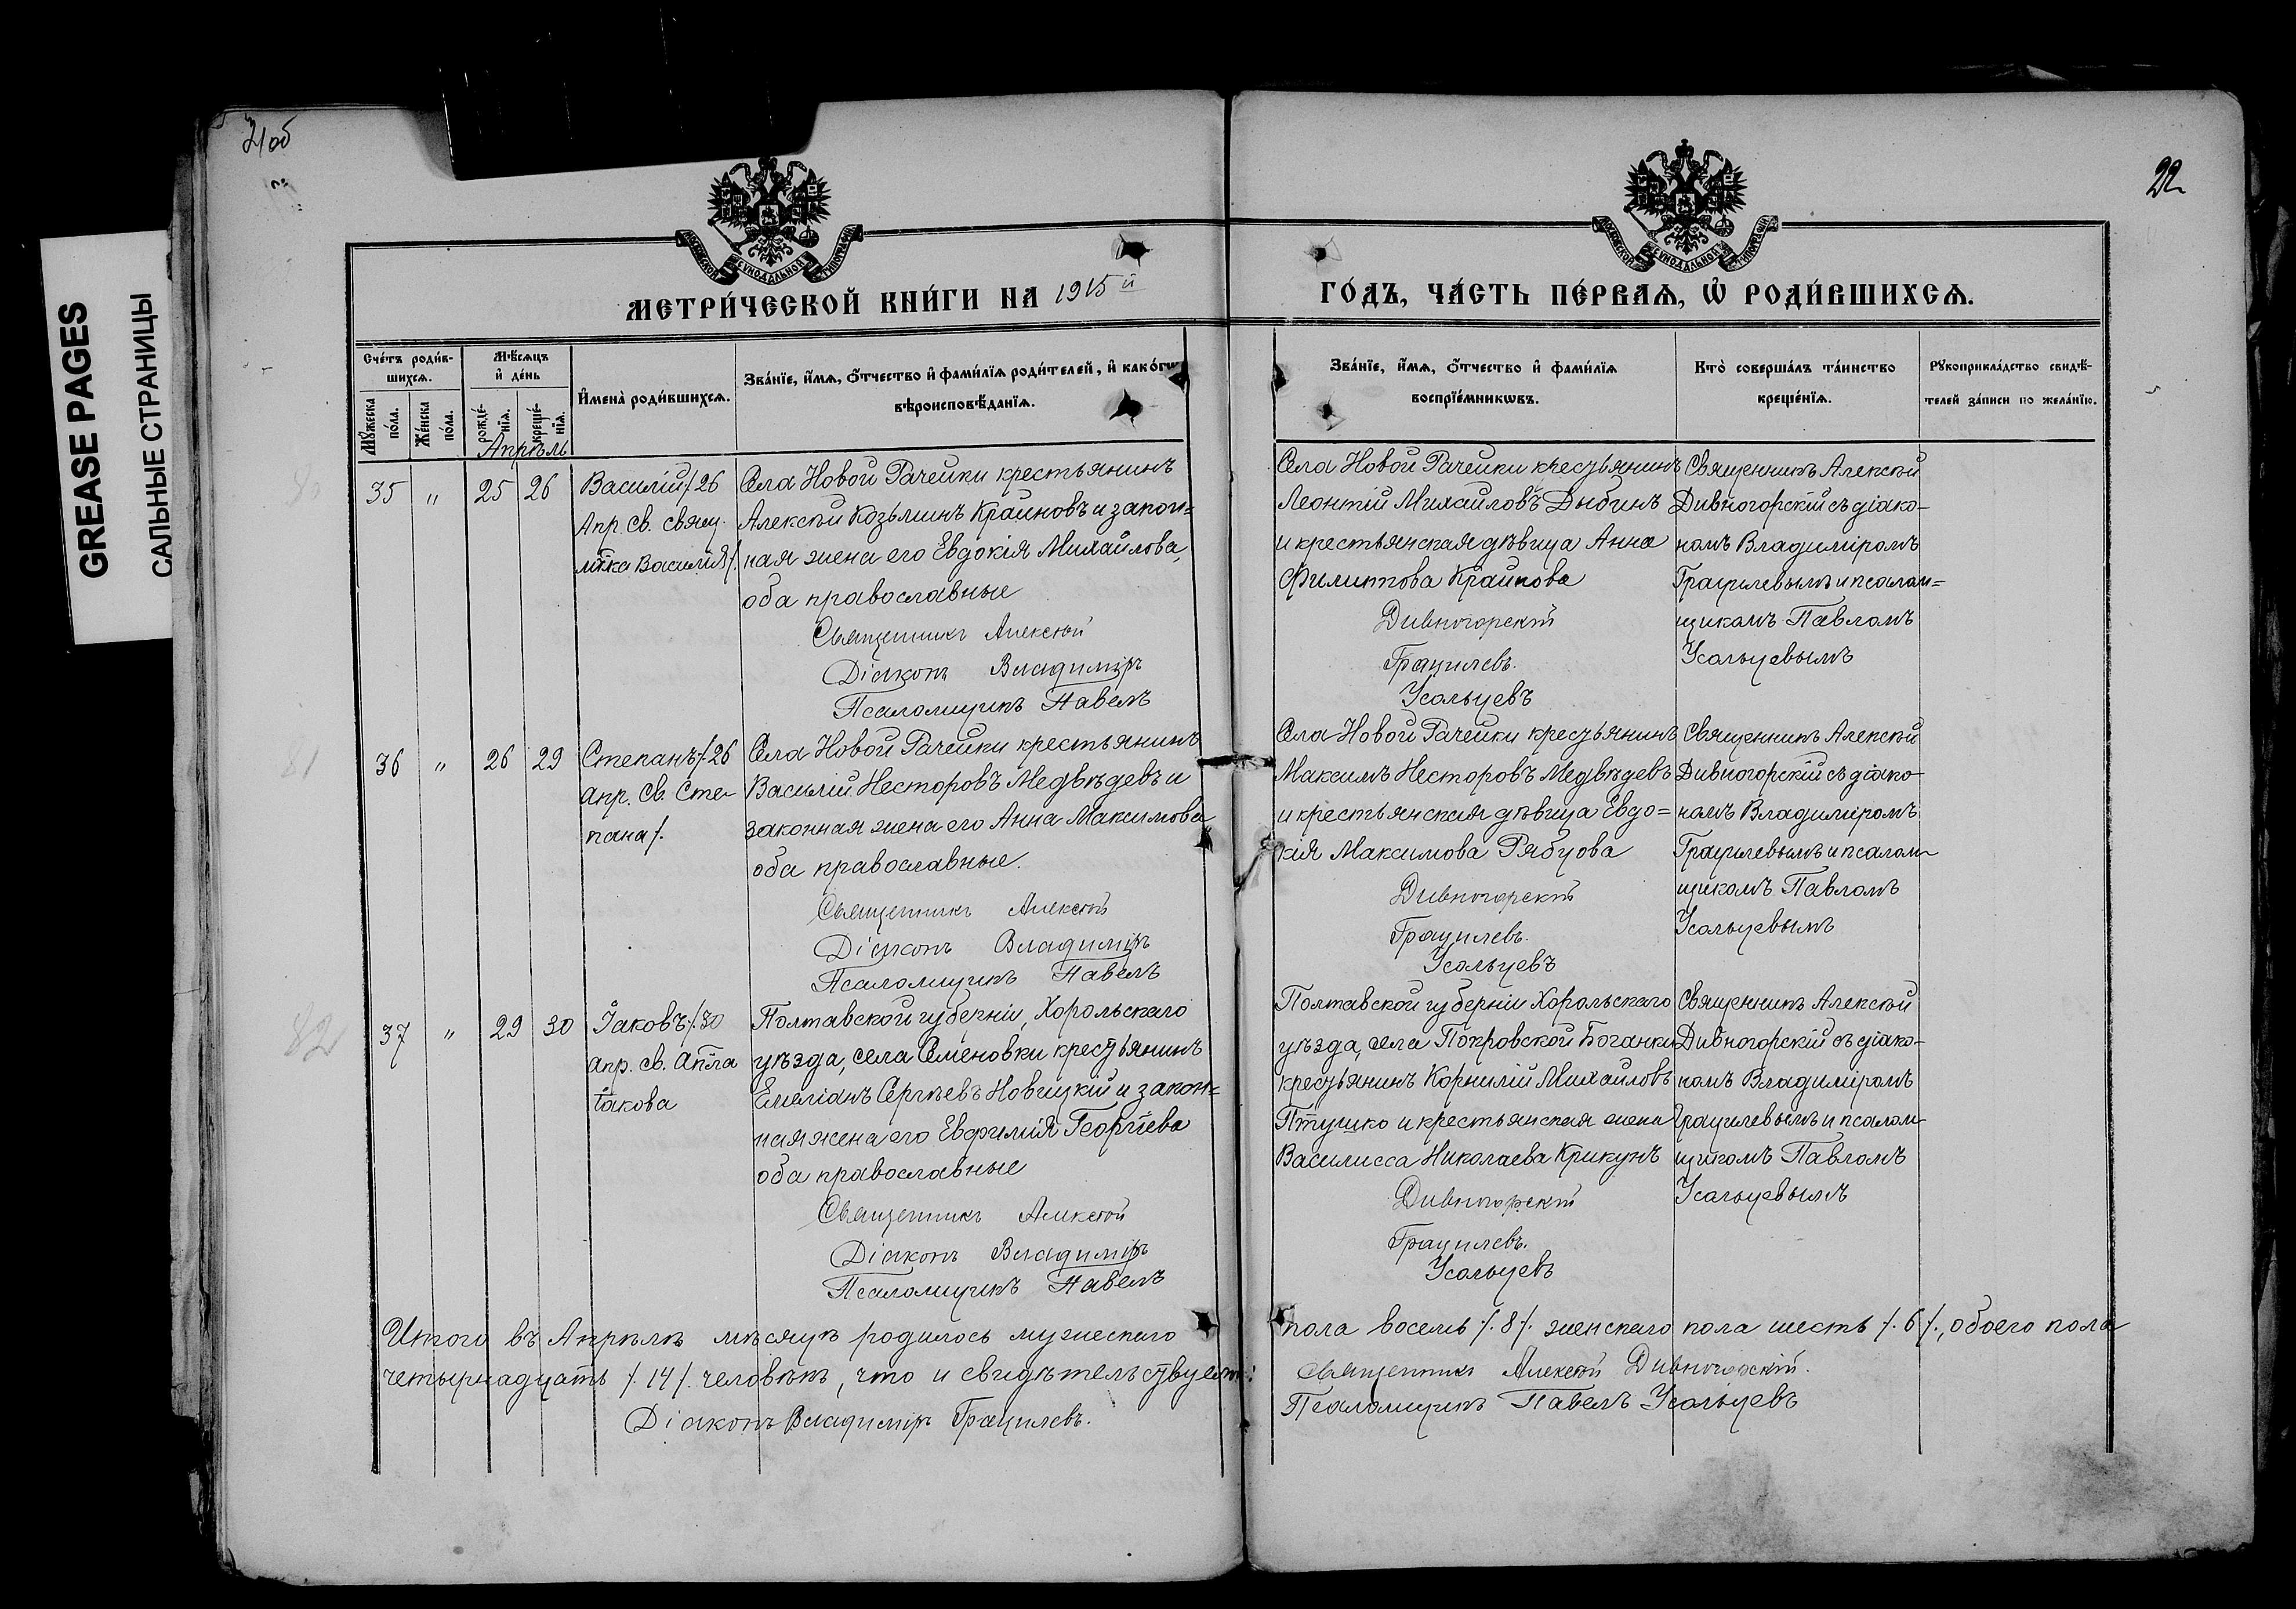 GREASE PAGES
САЛЬНЫЕ СТРАНИЦЫ
21об
22
МОСКОВСКОЙ СѴНОДАЛЬНОЙ ТИПОГРАФІИ
МОСКОВСКОЙ СѴНОДАЛЬНОЙ ТИПОГРАФІИ
МЕТРИ́ЧЕСКОЙ КНИ́ГИ НА 1915й
ГО́ДЪ, ЧА́СТЬ ПЕ́РВАѦ, Ѡ҆ РОДИ́ВШИХСѦ.
Сче́тъ роди́в-
шихсѧ.
Мꙋ́жеска по́ла.
Же́нска по́ла.
Мѣ́сѧцъ
и҆ де́нь
рожде́-
нїѧ.
креще́-
нїѧ.
И҆мена̀ роди́вшихсѧ.
Зва́нїе, и҆́мѧ, ѻ҆́тчество и҆ фами́лїѧ роди́телей, и҆ како́гѡ
вѣроисповѣ́данїѧ.
Зва́нїе, и҆́мѧ, ѻ҆́тчество и҆ фами́лїѧ
воспрїе́мникѡвъ.
Кто̀ соверша́лъ та́инство
креще́нїѧ.
Рꙋкоприкла́дство свидѣ́-
телей за́писи по жела́нїю.
Апрѣль
35 " 25 26
Василій /.26
Апр. св. свящ.
мчка Василія/.
Села Новой Рачейки крестьянинъ
Алексѣй Козьминъ Крайновъ и закон=
ная жена его Евдокія Михайлова,
оба православные
Священникъ Алексѣй
Діаконъ Владиміръ
Псаломщикъ Павелъ
Села Новой Рачейки крестьянинъ
Леонтій Михайловъ Дыбинъ
и крестьянская дѣвица Анна
Филиппова Крайнова
Дивногорскій
Грацилевъ.
Усольцевъ
Священникъ Алексѣй
Дивногорскій съ діако-
номъ Владиміромъ
Грацилевымъ и псалом=
щикомъ Павломъ
Усольцевымъ
81
36 " 26 29
Степанъ /.26
апр. Св. Сте-
пана/.
Села Новой Рачейки крестьянинъ
Василій Несторовъ Медвѣдевъ и
законная жена его Анна Максимова
оба православные.
Священникъ Алексѣй
Діаконъ Владиміръ
Псаломщикъ Павелъ
Села Новой Рачейки крестьянинъ
Максимъ Несторовъ Медвѣдевъ
и крестьянская дѣвица Евдо=
кія Максимова Рябцова
Дивногорскій
Грацилевъ.
Усольцевъ
Священникъ Алексѣй
Дивногорскій съ діако-
номъ Владиміромъ
Грацилевымъ и псалом-
щикомъ Павломъ
Усольцевымъ
82
37 " 29 30
Іаковъ /.30
апр. св. апла
Іакова
Полтавской губерніи, Хорольскаго
уѣзда, села Семеновки крестьянинъ
Емеліанъ Сергѣевъ Новицкій и закон=
ная жена его Евфимія Георгіева
оба православные
Священникъ Алексѣй
Діаконъ Владиміръ
Псаломщикъ Павелъ
Полтавской губерніи Хорольскаго
уѣзда, села Покровской Боганки
крестьянинъ Корнилій Михайловъ
Птушко и крестьянская жена
Василисса Николаева Крикунъ
Дивногорскій
Грацилевъ.
Усольцевъ
Священникъ Алексѣй
Дивногорскій съ діако-
номъ Владиміромъ
Грацилевымъ и псалом-
щикомъ Павломъ
Усольцевымъ
Итого въ Апрѣлѣ мѣсяцѣ родилось мужескаго пола восемь /.8/. женскаго пола шесть /.6/., обоего пола
четырнадцать /.14/. человѣкъ, что и свидѣтельствуемъ: Священникъ Алексѣй Дивногорскій.
Діаконъ Владиміръ Грацилевъ. Псаломщикъ Павелъ Усольцевъ